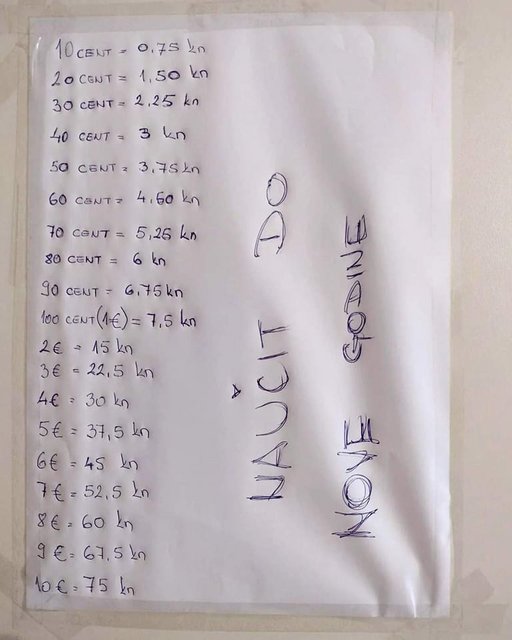 10 CENT = 0,75 kn
20 CENT = 1,50 kn
30 CENT = 2,25 kn
40 CENT = 3 kn
50 CENT = 3,75 kn
60 CENT = 4,50 kn
70 CENT = 5,25 kn
80 CENT = 6 kn
90 CENT = 6,75 kn
100 CENT (1€) = 7,5 kn
2€ = 15 kn
3€ = 22,5 kn
4€ = 30 kn
5€ = 37,5 kn
6€ = 45 kn
7€ = 52,5 kn
8€ = 60 kn
9€ = 67,5 kn
10€ = 75 kn
NAUČIT DO
NOVE GODINE